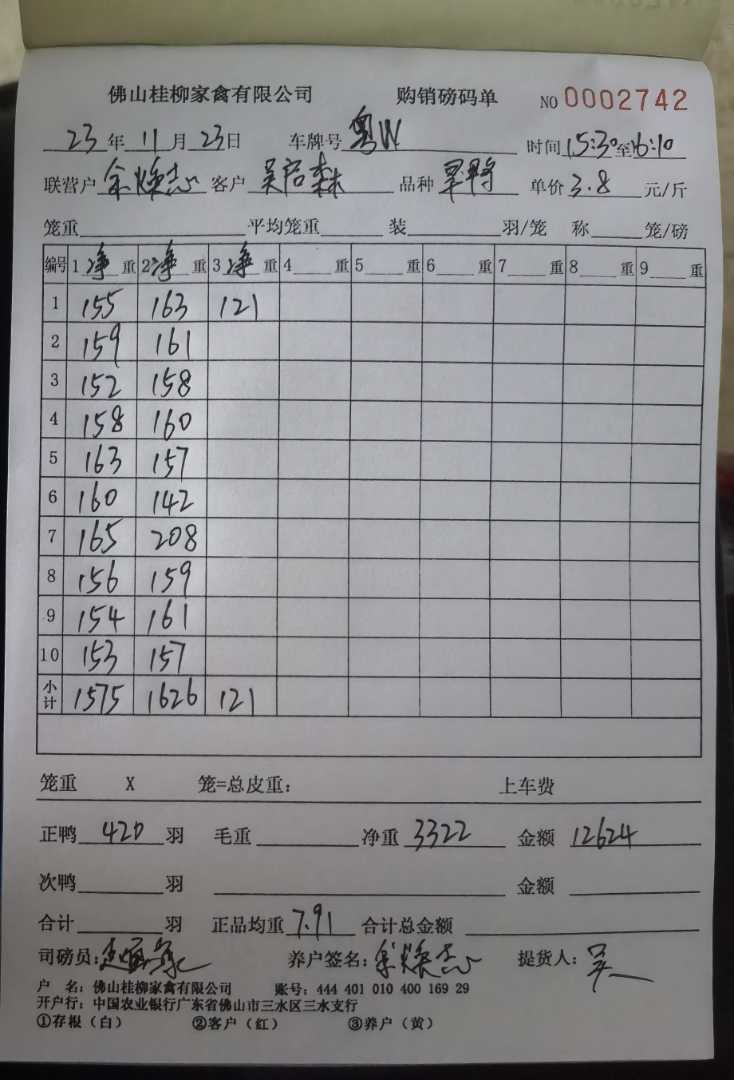 佛山桂柳家禽有限公司 购销磅码单 NO 0002742
23年11月23日 车牌号 粤W 时间 15:30至16:10
联营户 余焕志 客户 吴启森 品种 单价 3.8 元/斤
笼重 平均笼重 装 羽/笼 称 笼/磅
编号 1 净 重 2 净 重 3 净 重 4 重 5 重 6 重 7 重 8 重 9 重
1 155 163 121
2 159 161
3 152 158
4 158 160
5 163 157
6 160 142
7 165 208
8 156 159
9 154 161
10 153 157
小计 1575 1626 121
笼重 X 笼=总皮重: 上车费
正鸭 420 羽 毛重 净重 3322 金额 12624
次鸭 羽 金额
合计 羽 正品均重 7.91 合计总金额
司磅员: 养户签名: 余焕志 提货人: 吴
户 名: 佛山桂柳家禽有限公司 账号: 444 401 010 400 169 29
开户行: 中国农业银行广东省佛山市三水区三水支行
①存根（白） ②客户（红） ③养户（黄）